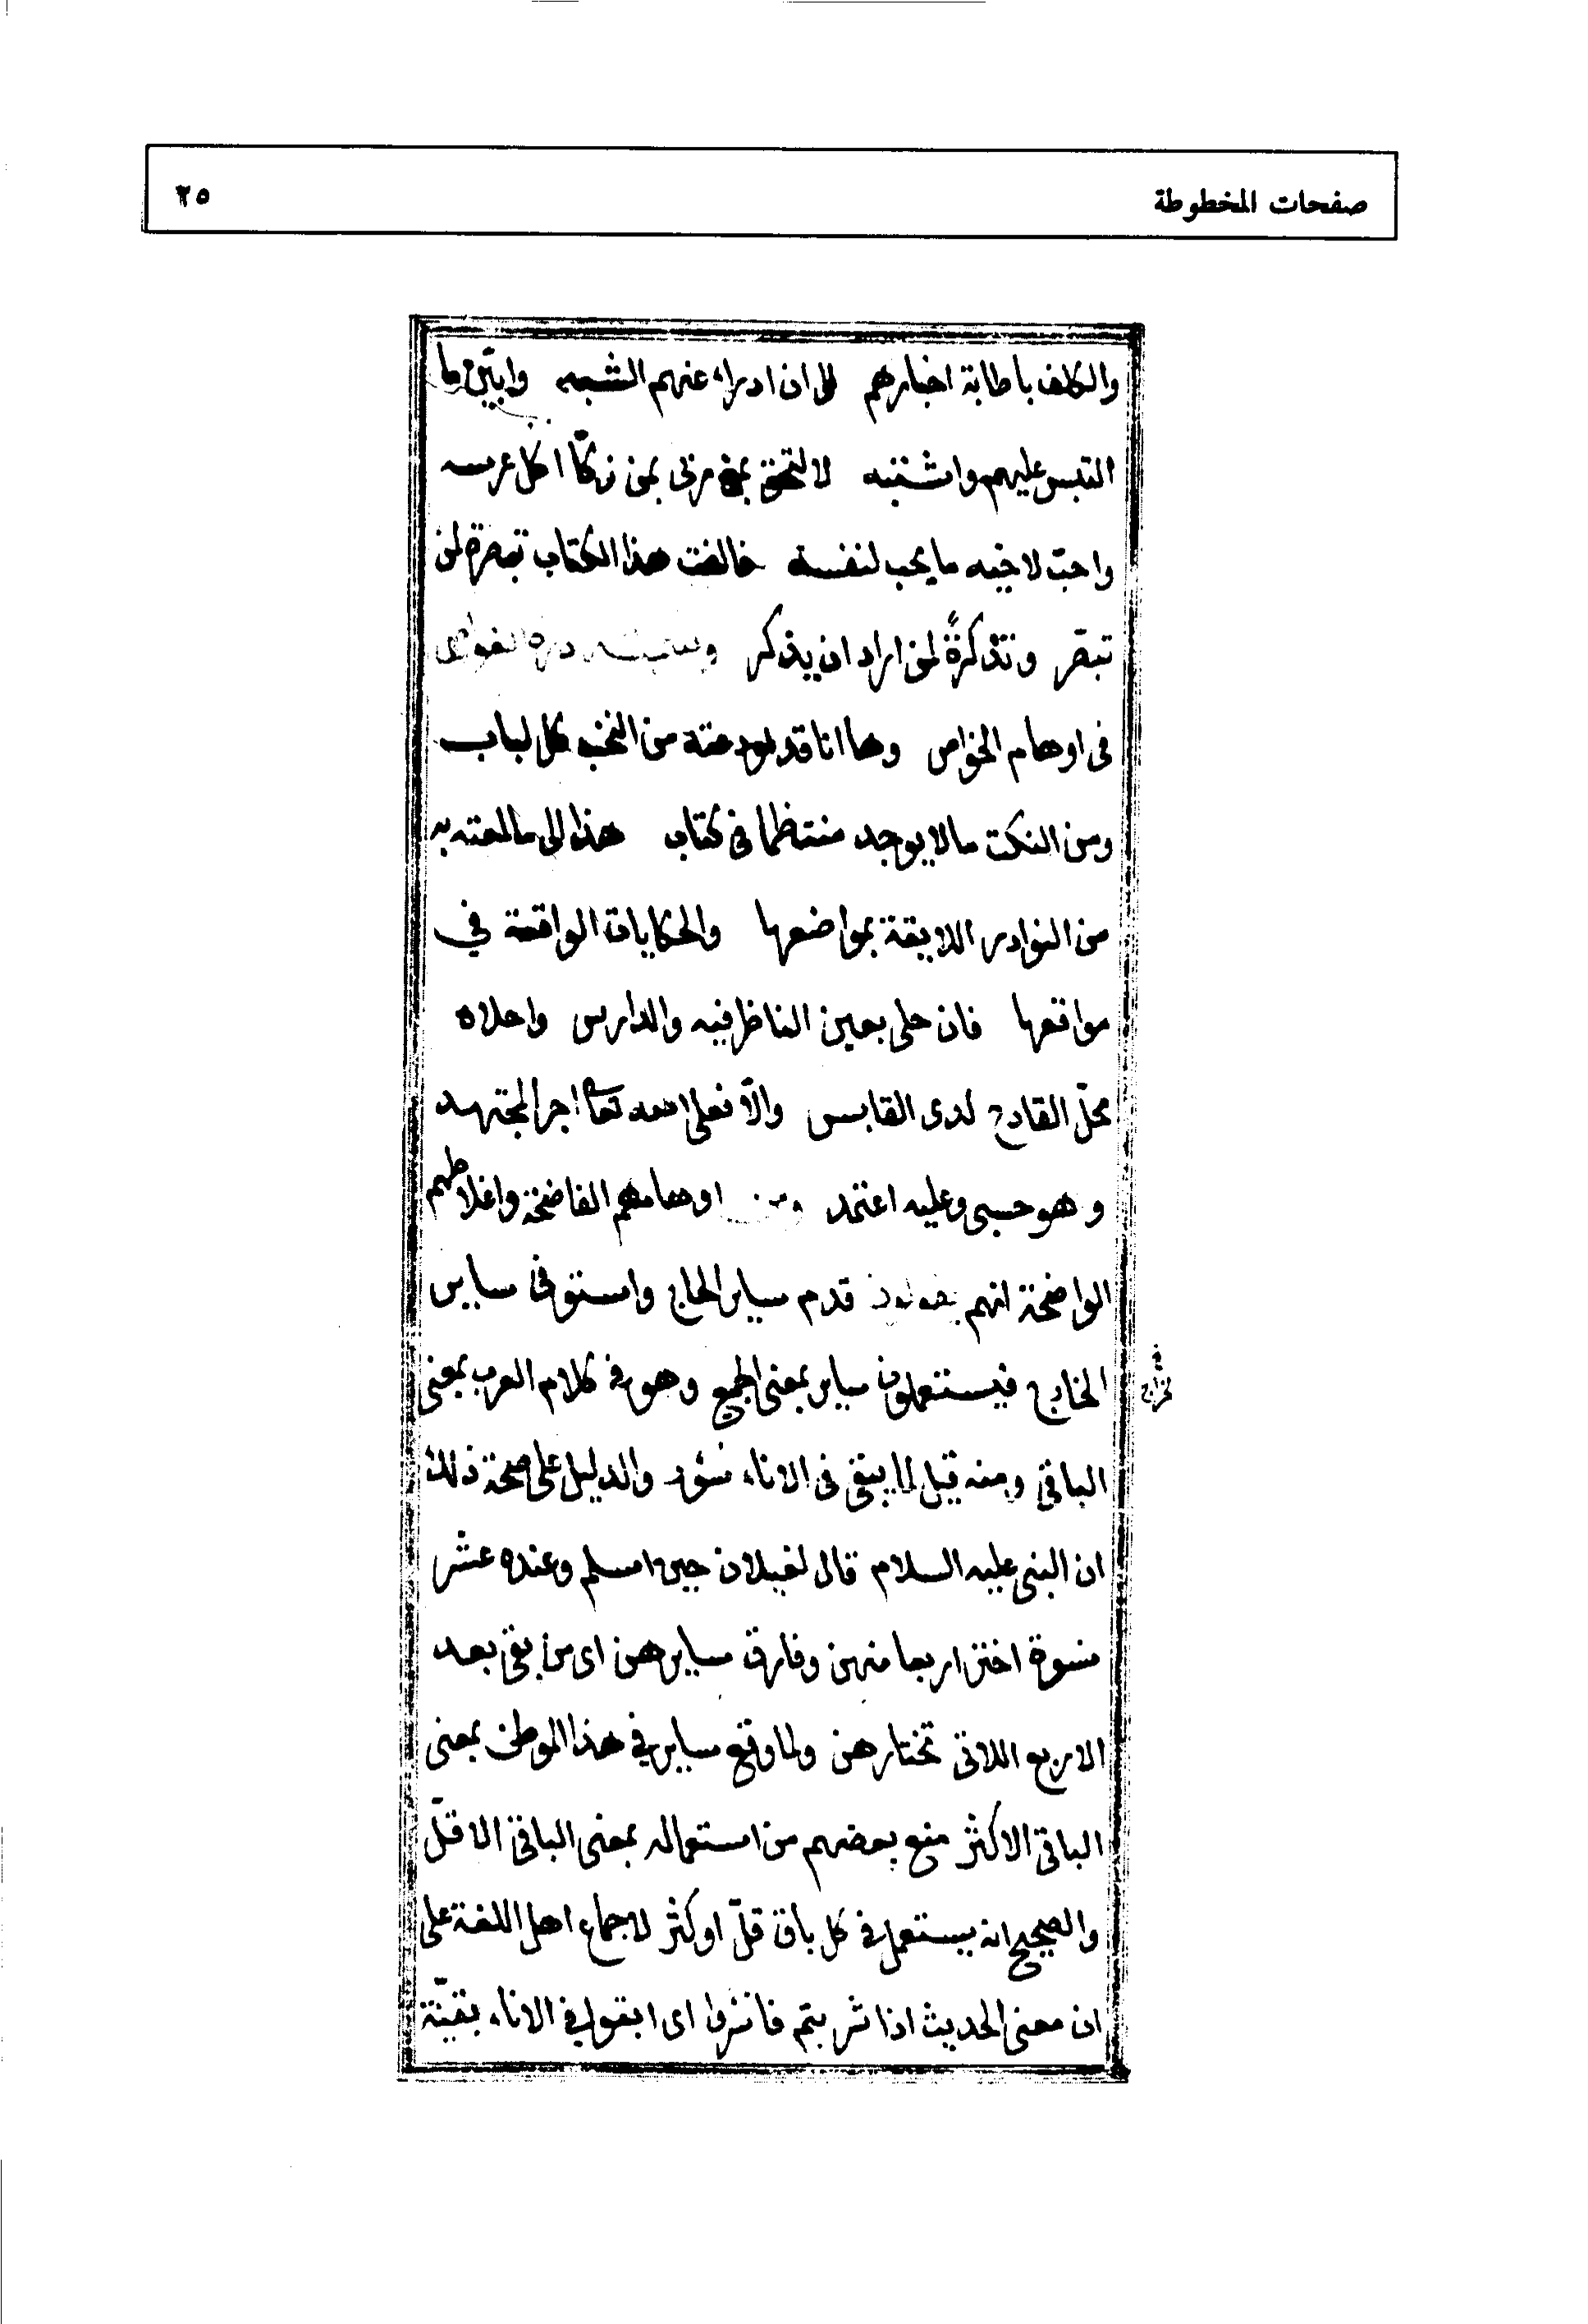 صفحات المخطوطة
٢٥
والكلف باطابة اخبارهم الى ان ادراء عنهم الشبه وابيّن ما
التبس عليهم واشتبه لالتحق بمن زكّا اكل غرسه
واحبّ لاخيه ما يحب لنفسه فالفت هذا الكتاب تبصرة لمن
تبصّر وتذكرةً لمن اراد ان يذكر وسميته درة الغواص
فى اوهام الخواص وها انا قد اودعته من النخب كل لباب
ومن النكت ما لا يوجد منتظما فى كتاب هذا الى ما لمعته به
من النوادر اللايقة بمواضعها والحكايات الواقعة في
مواقعها فان حلى بعين الناظر فيه والدارس واحلاه
محلّ القادح لدى القابس والّا فعلى الله تعالى اجر المجتهد
وهو حسبى وعليه اعتمد ومن اوهامهم الفاضحة واغلاطهم
الواضحة انهم يقولون قدم ساير الحاج واستوفى ساير
الخارج فيستعملون ساير بمعنى الجميع وهو فى كلام العرب بمعنى
الباقى ومنه قيل لما يبقى فى الاناء سؤر والدليل على صحة ذلك
ان النبى عليه السلام قال لغيلان حين اسلم وعنده عشر
نسوة اختر اربعا منهن وفارق سايرهن اى من بقى بعد
الاربع اللاتى تختارهن ولما وقع ساير في هذا الموطن بمعنى
الباقى الاكثر منع بعضهم من استعماله بمعنى الباقى الاقلّ
والصحيح انه يستعمل فى كل باق قلّ او كثر لاجماع اهل اللغة على
ان معنى الحديث اذا شربتم فاسئروا اى ابقوا فى الاناء بقيّة